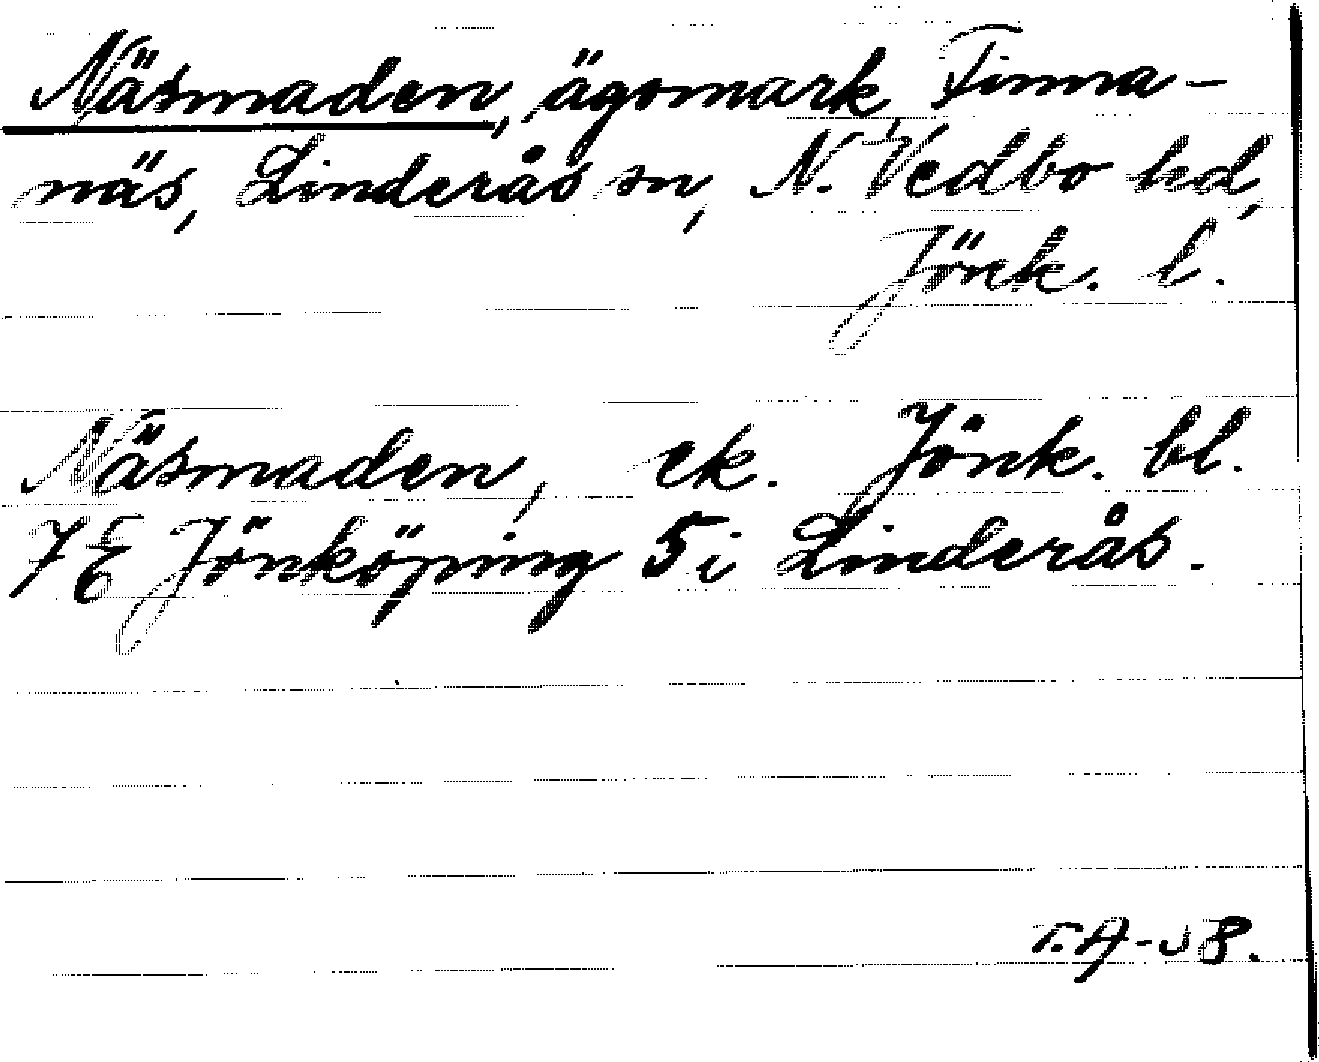 Näsmaden, ägomark, Finna-
näs, Linderås sn, N. Vedbo hd,
Jönk. l.
Näsmaden, ek. Jönk. bl.
7E Jönköping 5i Linderås.